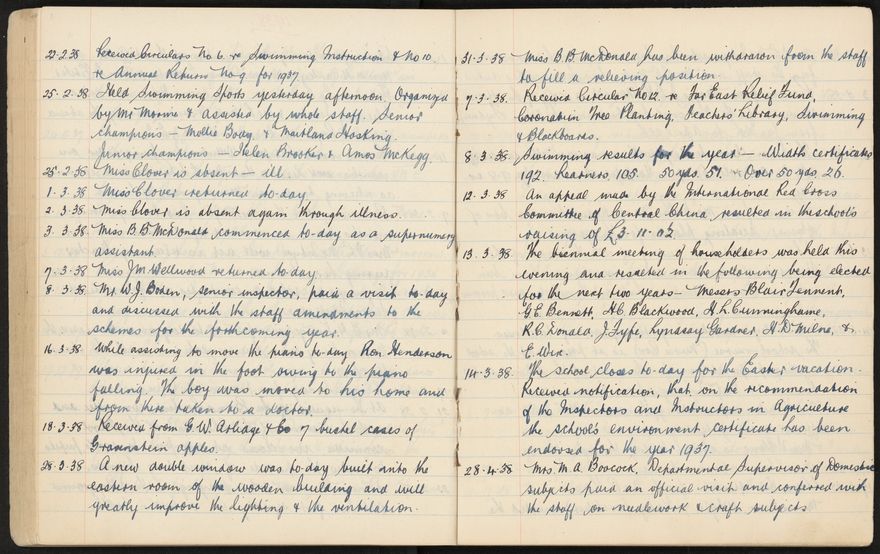 22.2.38 Received Circulars No 6. re Swimming Instruction & No 10
re Annual Return No 9 for 1937
25.2.38 Held Swimming Sports yesterday afternoon, Organized
by Mr & assisted by whole staff. Senior
champions – Mollie Body, & Maitland Hosking.
Junior champions – Helen Brooker & Amos McKegg.
25.2.38 Miss Clover is absent – ill.
1.3.38 Miss Clover returned to-day
2.3.38 Miss Clover is absent again through illness.
3.3.38 Miss B.B. McDonald commenced to-day as a supernumery
assistant
7.3.38 Miss J.M. Wellwood returned to-day.
8.3.38 Mr W.J. Boden, senior inspector, paid a visit to-day
and discussed with the staff amendments to the
schemes for the forthcoming year.
16.3.38 While assisting to move the piano to-day Ron Henderson
was injured in the foot owing to the piano
falling. The boy was moved to his home and
from there taken to a doctor.
18.3.38 Received from G.W. & Co 7 bushel cases of
Gravenstein apples.
28.3.38 A new double window was to-day built into the
eastern room of the wooden building and will
greatly improve the lighting & the ventilation.
31.3.38 Miss B.B. McDonald has been withdrawn from the staff
to fill a relieving position
7.3.38. Received Circular No 12 re Far East Relief Fund,
Coronation Tree Planting, Teachers' Library, Swimming
& Blackboards.
8.3.38 Swimming results for the year – Width certificates
192. Learners. 105. 50 yds. 51. – Over 50 yds 26.
12.3.38 An appeal made by the International Red Cross
Committee of Central China, resulted in the school's
raising of £3-11-0½
13.3.38. The biennial meeting of householders was held this
evening and resulted in the following being elected
for the next two years – Messrs Blair Tennent,
G.E. Bennett, H.C. Blackwood, H.L. Cunninghame,
R.C. Donald, J. Fyfe, Lyndsay Gardner, H.D. Milne, &
E. Wix.
14.3.38. The school closes to-day for the Easter vacation.
Received notification, that on the recommendation
of the Inspectors and Instructors in Agriculture
the school's environment certificate has been
endorsed for the year 1937.
28.4.38 Mrs M.A. Boocock, Departmental Supervisor of Domestic
subjects paid an official visit and conferred with
the staff on needlework & craft subjects